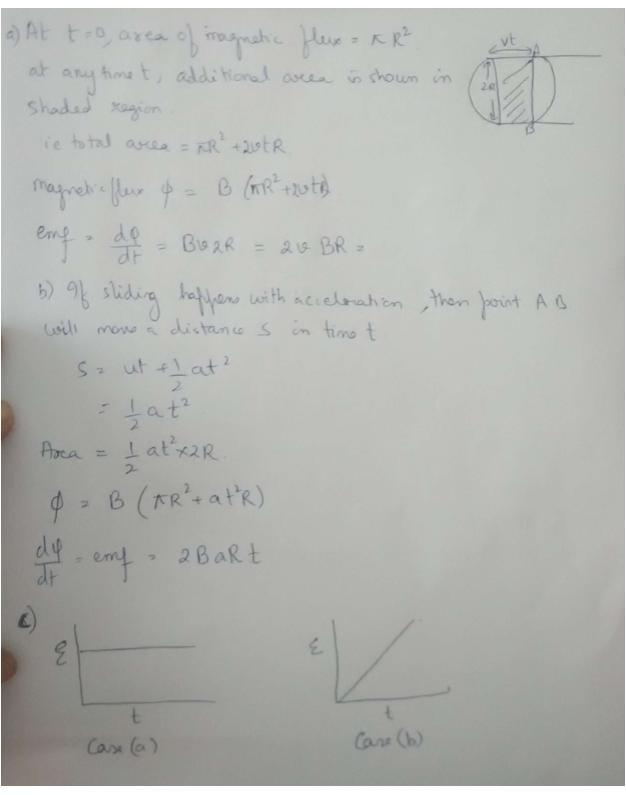 a) At t=0, area of magnetic flux = πR²
at any time t, additional area is shown in
shaded region.
ie total area = πR² + 2vtR
magnetic flux φ = B (πR² + 2vtR)
emf = dφ/dt = Bv2R = 2vBR =
vt
A
2R
B
b) If sliding happens with acceleration, then point A B
will move a distance S in time t
S = ut + 1/2 at²
= 1/2 at²
Area = 1/2 at² × 2R.
φ = B (πR² + at²R)
dφ/dt = emf = 2BaRt
c)
ε
t
Case (a)
ε
t
Case (b)